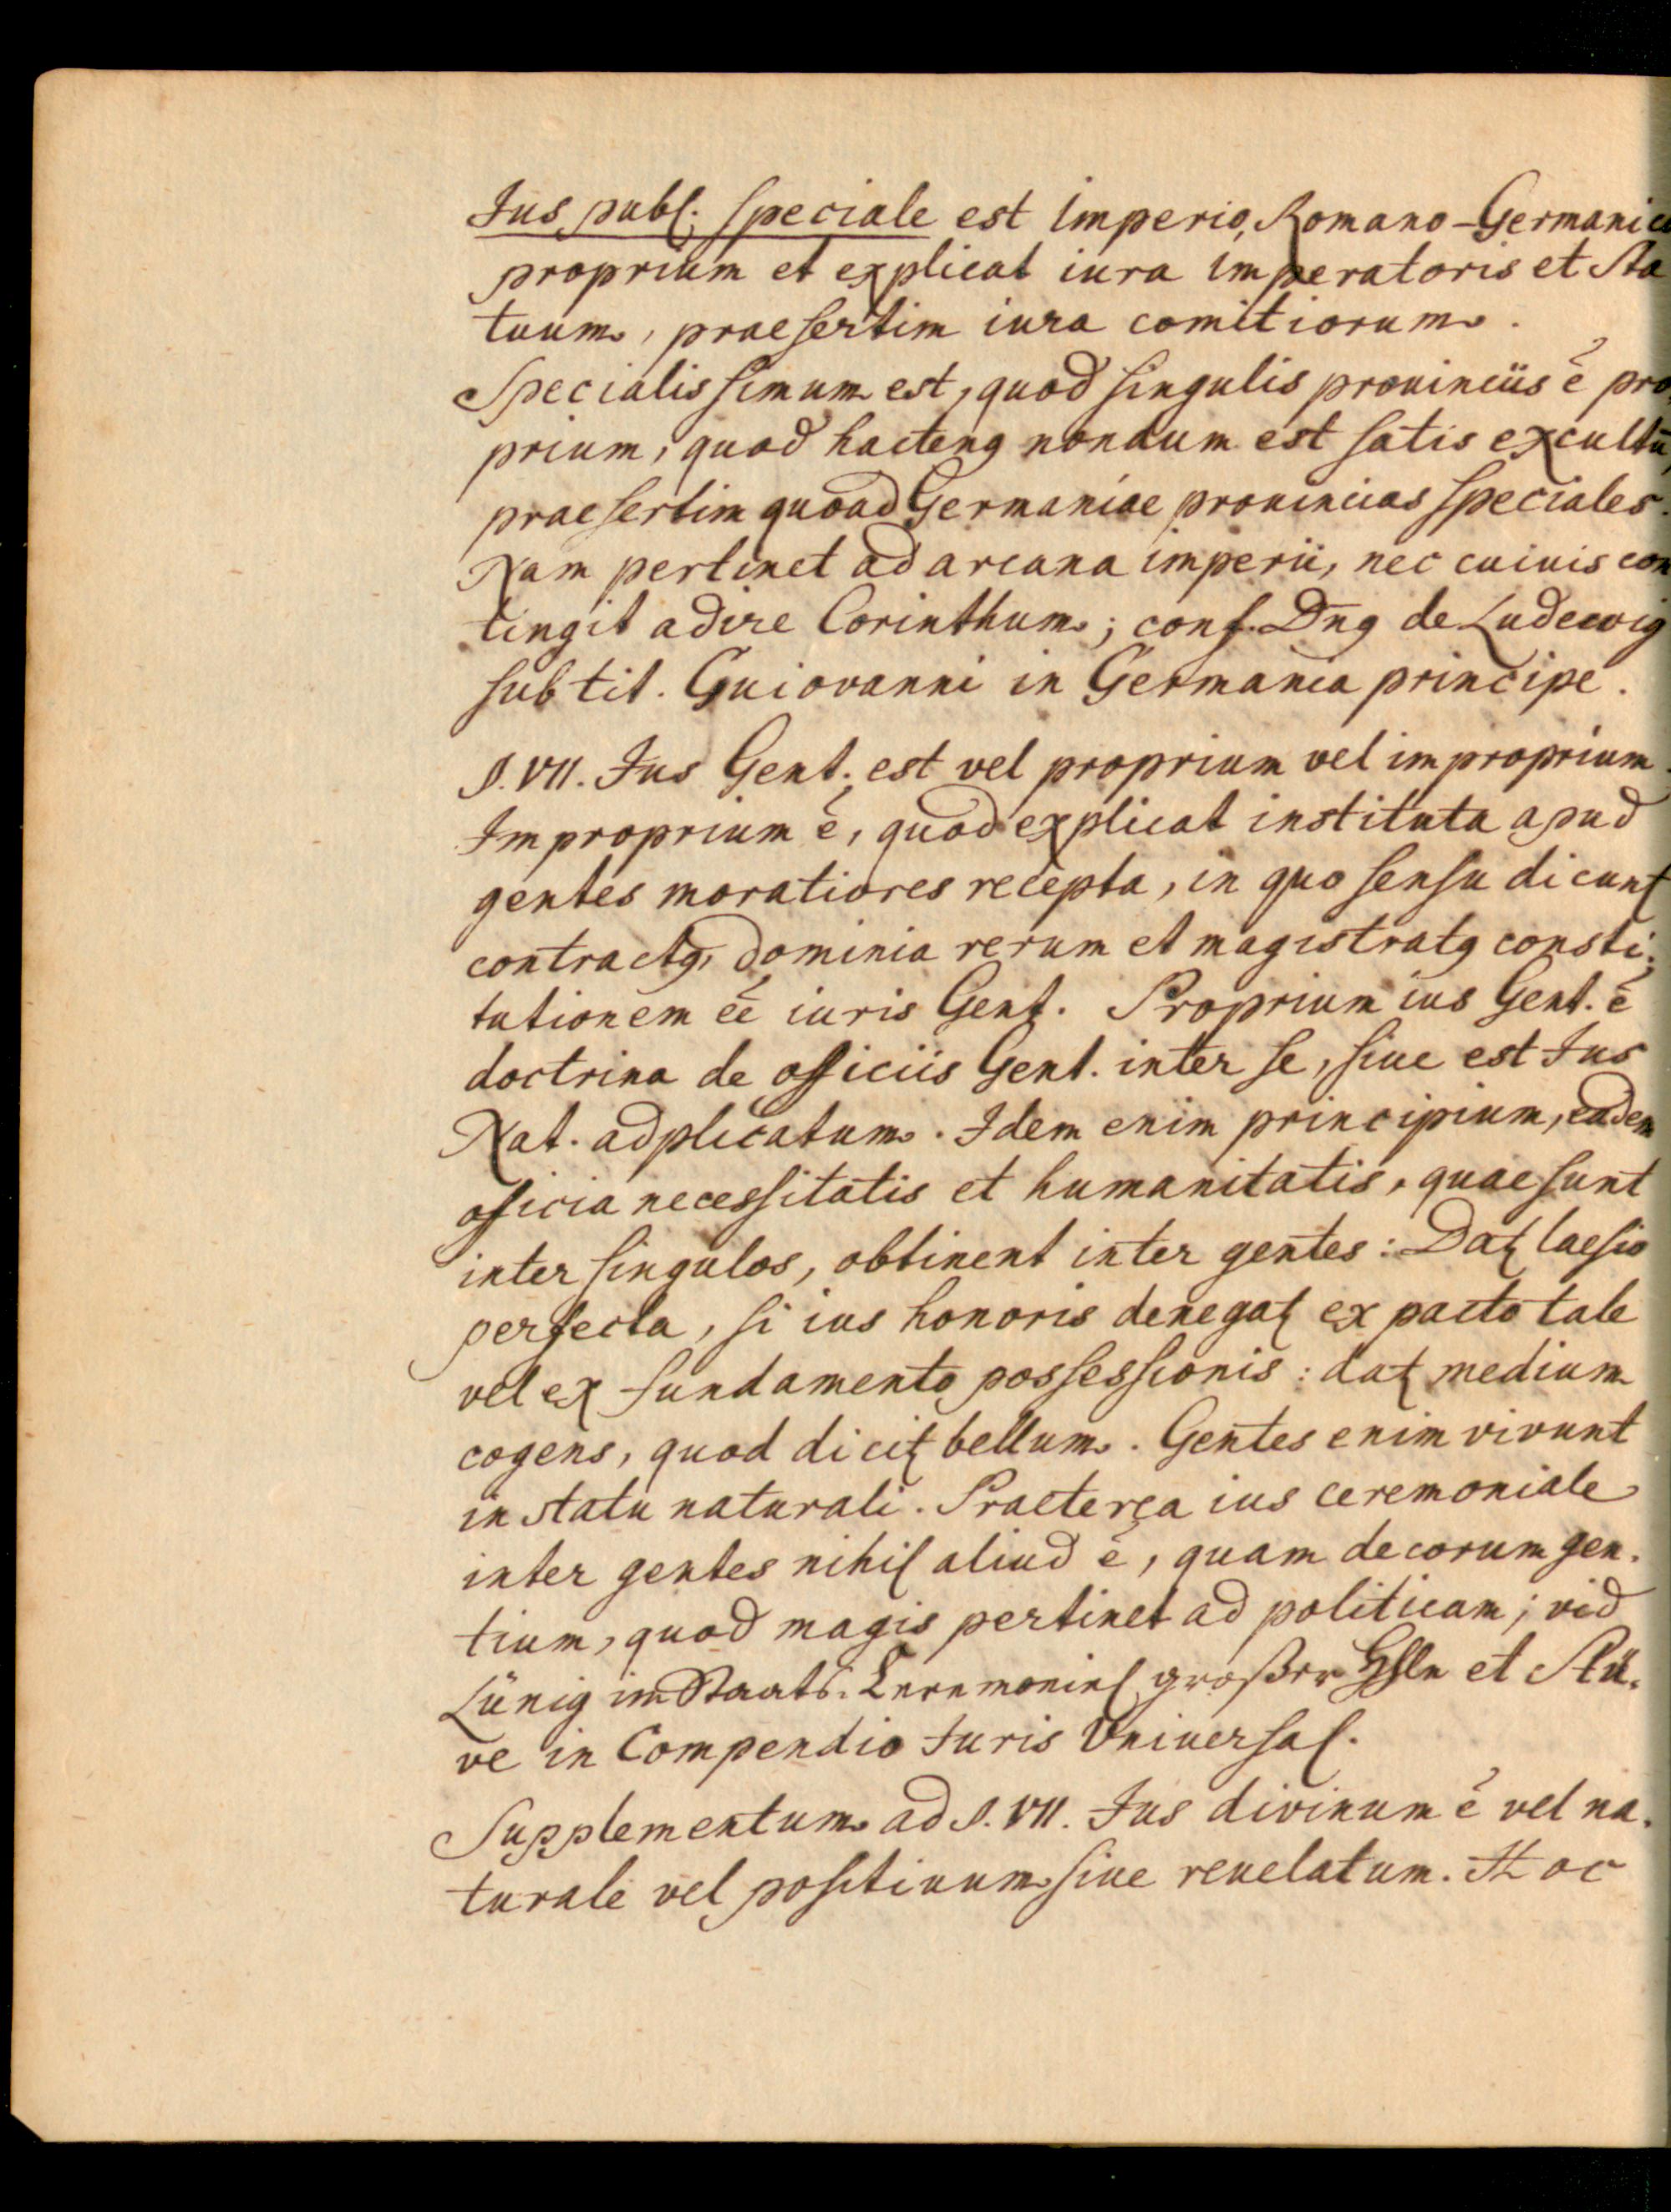 Jus publ. speciale est Imperio, Romano-Germanico
proprium et explicat iura Imperatoris et Sta
tuum, praesertim iura comitiorum.
Specialissimum est, quod singulis prouinciis ē pro,
prium, quod hactenq nondum est satis excultū,
praesertim quoad Germaniae prouincias speciales.
Nam pertinet ad arcana imperii, nec cuiuis con
tingit adire Corinthum; conf. Dnq de Ludewig
sub tit. Guiovanni in Germania principe.
§. VII. Jus Gent. est vel proprium vel improprium.
Improprium ē, quod explicat instituta apud
gentes moratiores recepta, in quo sensu dicunt
contractq, dominia rerum et magistratq consti-
tutionem eē iuris Gent. Proprium ius Gent. ē
doctrina de officiis Gent. inter se, siue est Jus
Nat. adplicatum. Idem enim principium, eadem
officia necessitatis et humanitatis, quae sunt
inter singulos, obtinent inter gentes: Datʒ laesio
perfecta, si ius honoris denegatʒ ex pacto tale
vel ex fundamento possessionis: datʒ medium
cogens, quod dicitʒ bellum. Gentes enim vivunt
in statu naturali. Praeterea ius ceremoniale
inter gentes nihil aliud ē, quam decorum gen-
tium, quod magis pertinet ad politicam; vid
Lünig im Staats-Ceremoniel großer et Stü-
ve in Compendio Juris Universal.
Supplementum ad §. VII. Jus divinum ē vel na-
turale vel positiuum siue reuelatum. Hoc